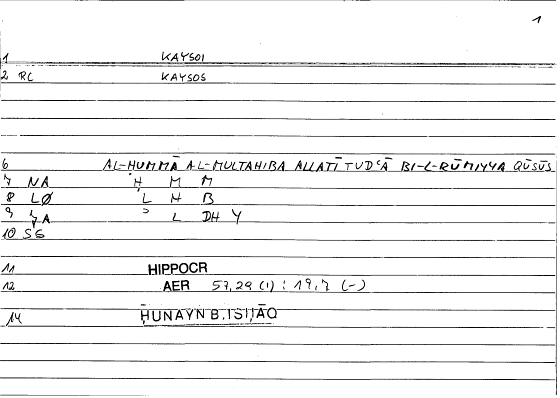 1
1 KAYSOI
2 RC KAYSOS
6 AL-ḤUMMĀ AL-MULTAHIBA ALLATĪ TUDʿĀ BI-L-RŪMIYYA QŪSŪS
7 NA Ḥ M M
8 LØ L H B
9 JA L DH Y
10 SG
11 HIPPOCR
12 AER 57,29 (1) : 19,7 (-)
14 ḤUNAYN B. ISḤĀQ